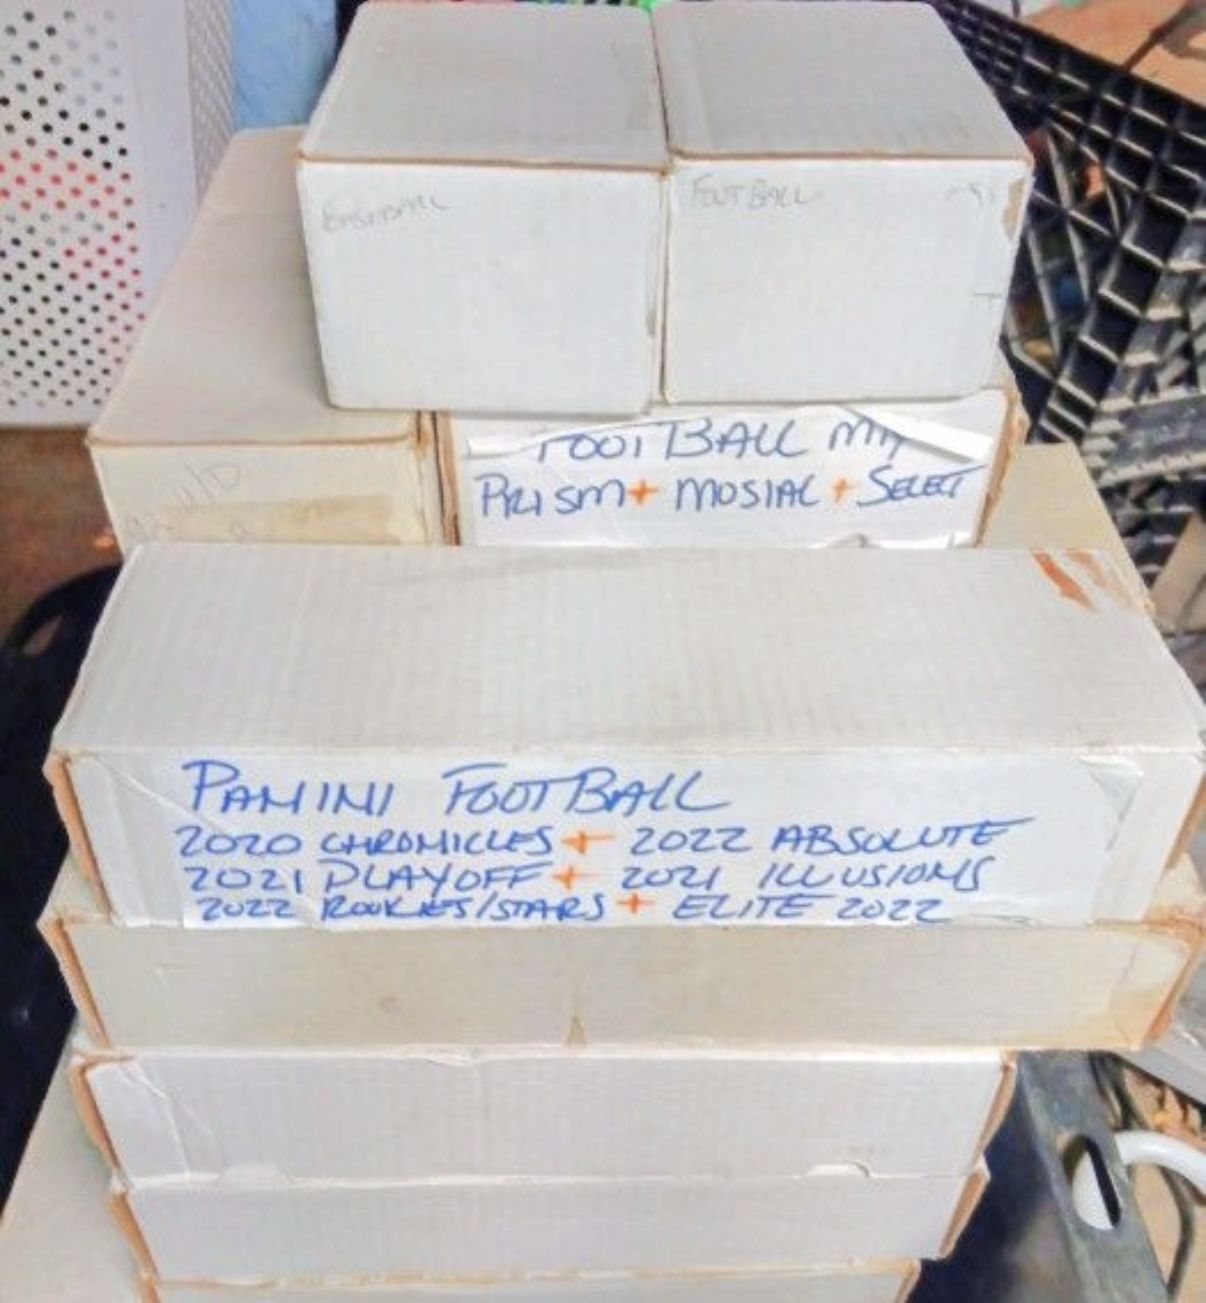 BASEBALL
FOOTBALL
FOOTBALL MIX
PRISM + MOSIAC + SELECT
PANINI FOOTBALL
2020 CHRONICLES + 2022 ABSOLUTE
2021 PLAYOFF + 2021 ILLUSIONS
2022 ROOKIES/STARS + ELITE 2022